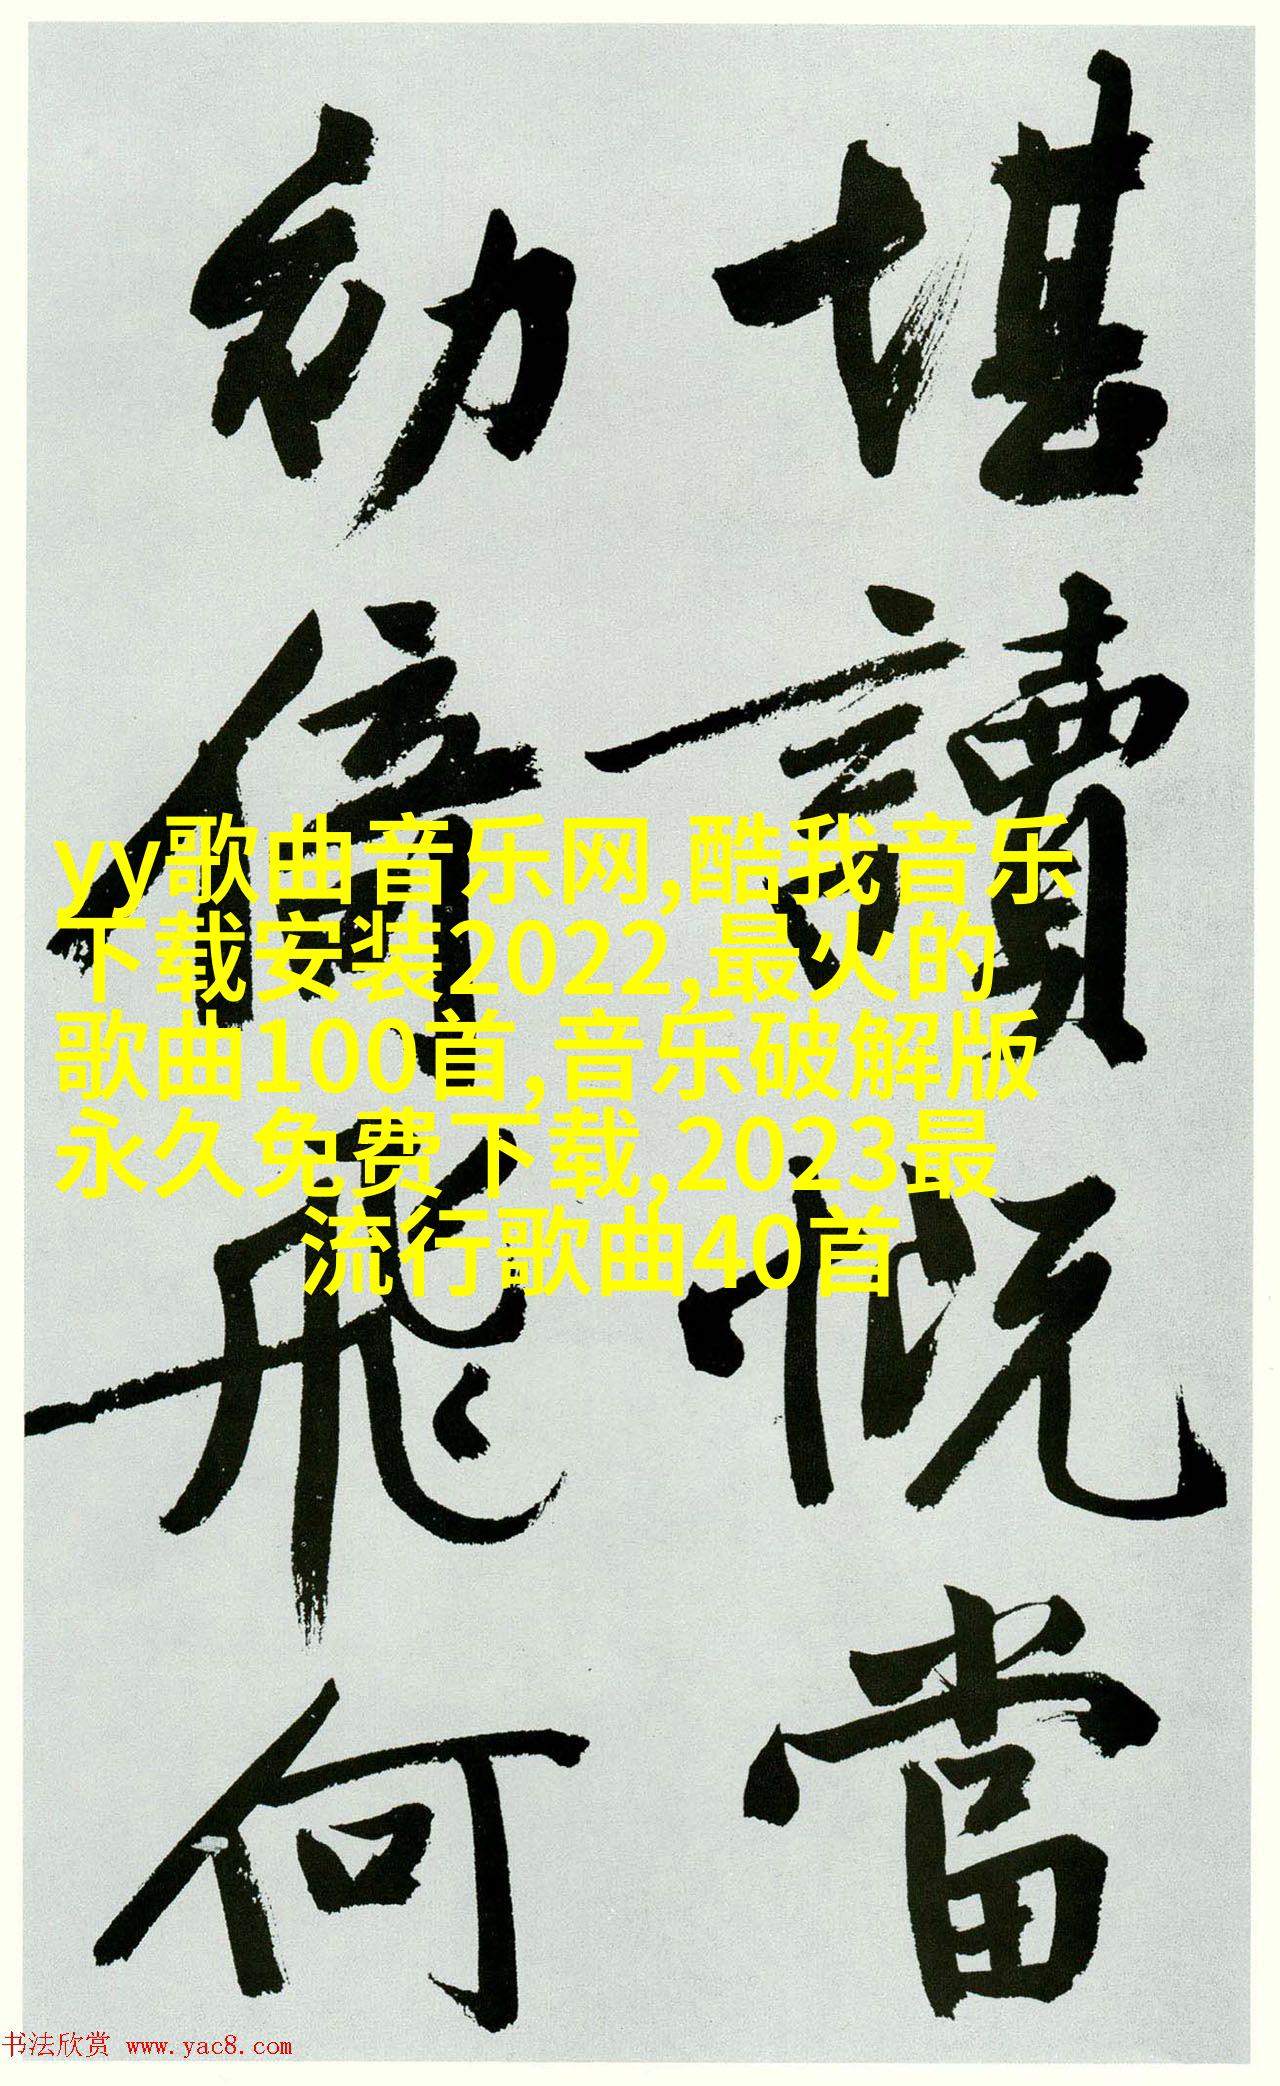 堪讀慨當
飛何
yy歌曲音乐网,酷我音乐
下载安装2022,最火的
歌曲100首,音乐破解版
永久免费下载,2023最
流行歌曲40首
书法欣赏 www.yac8.com